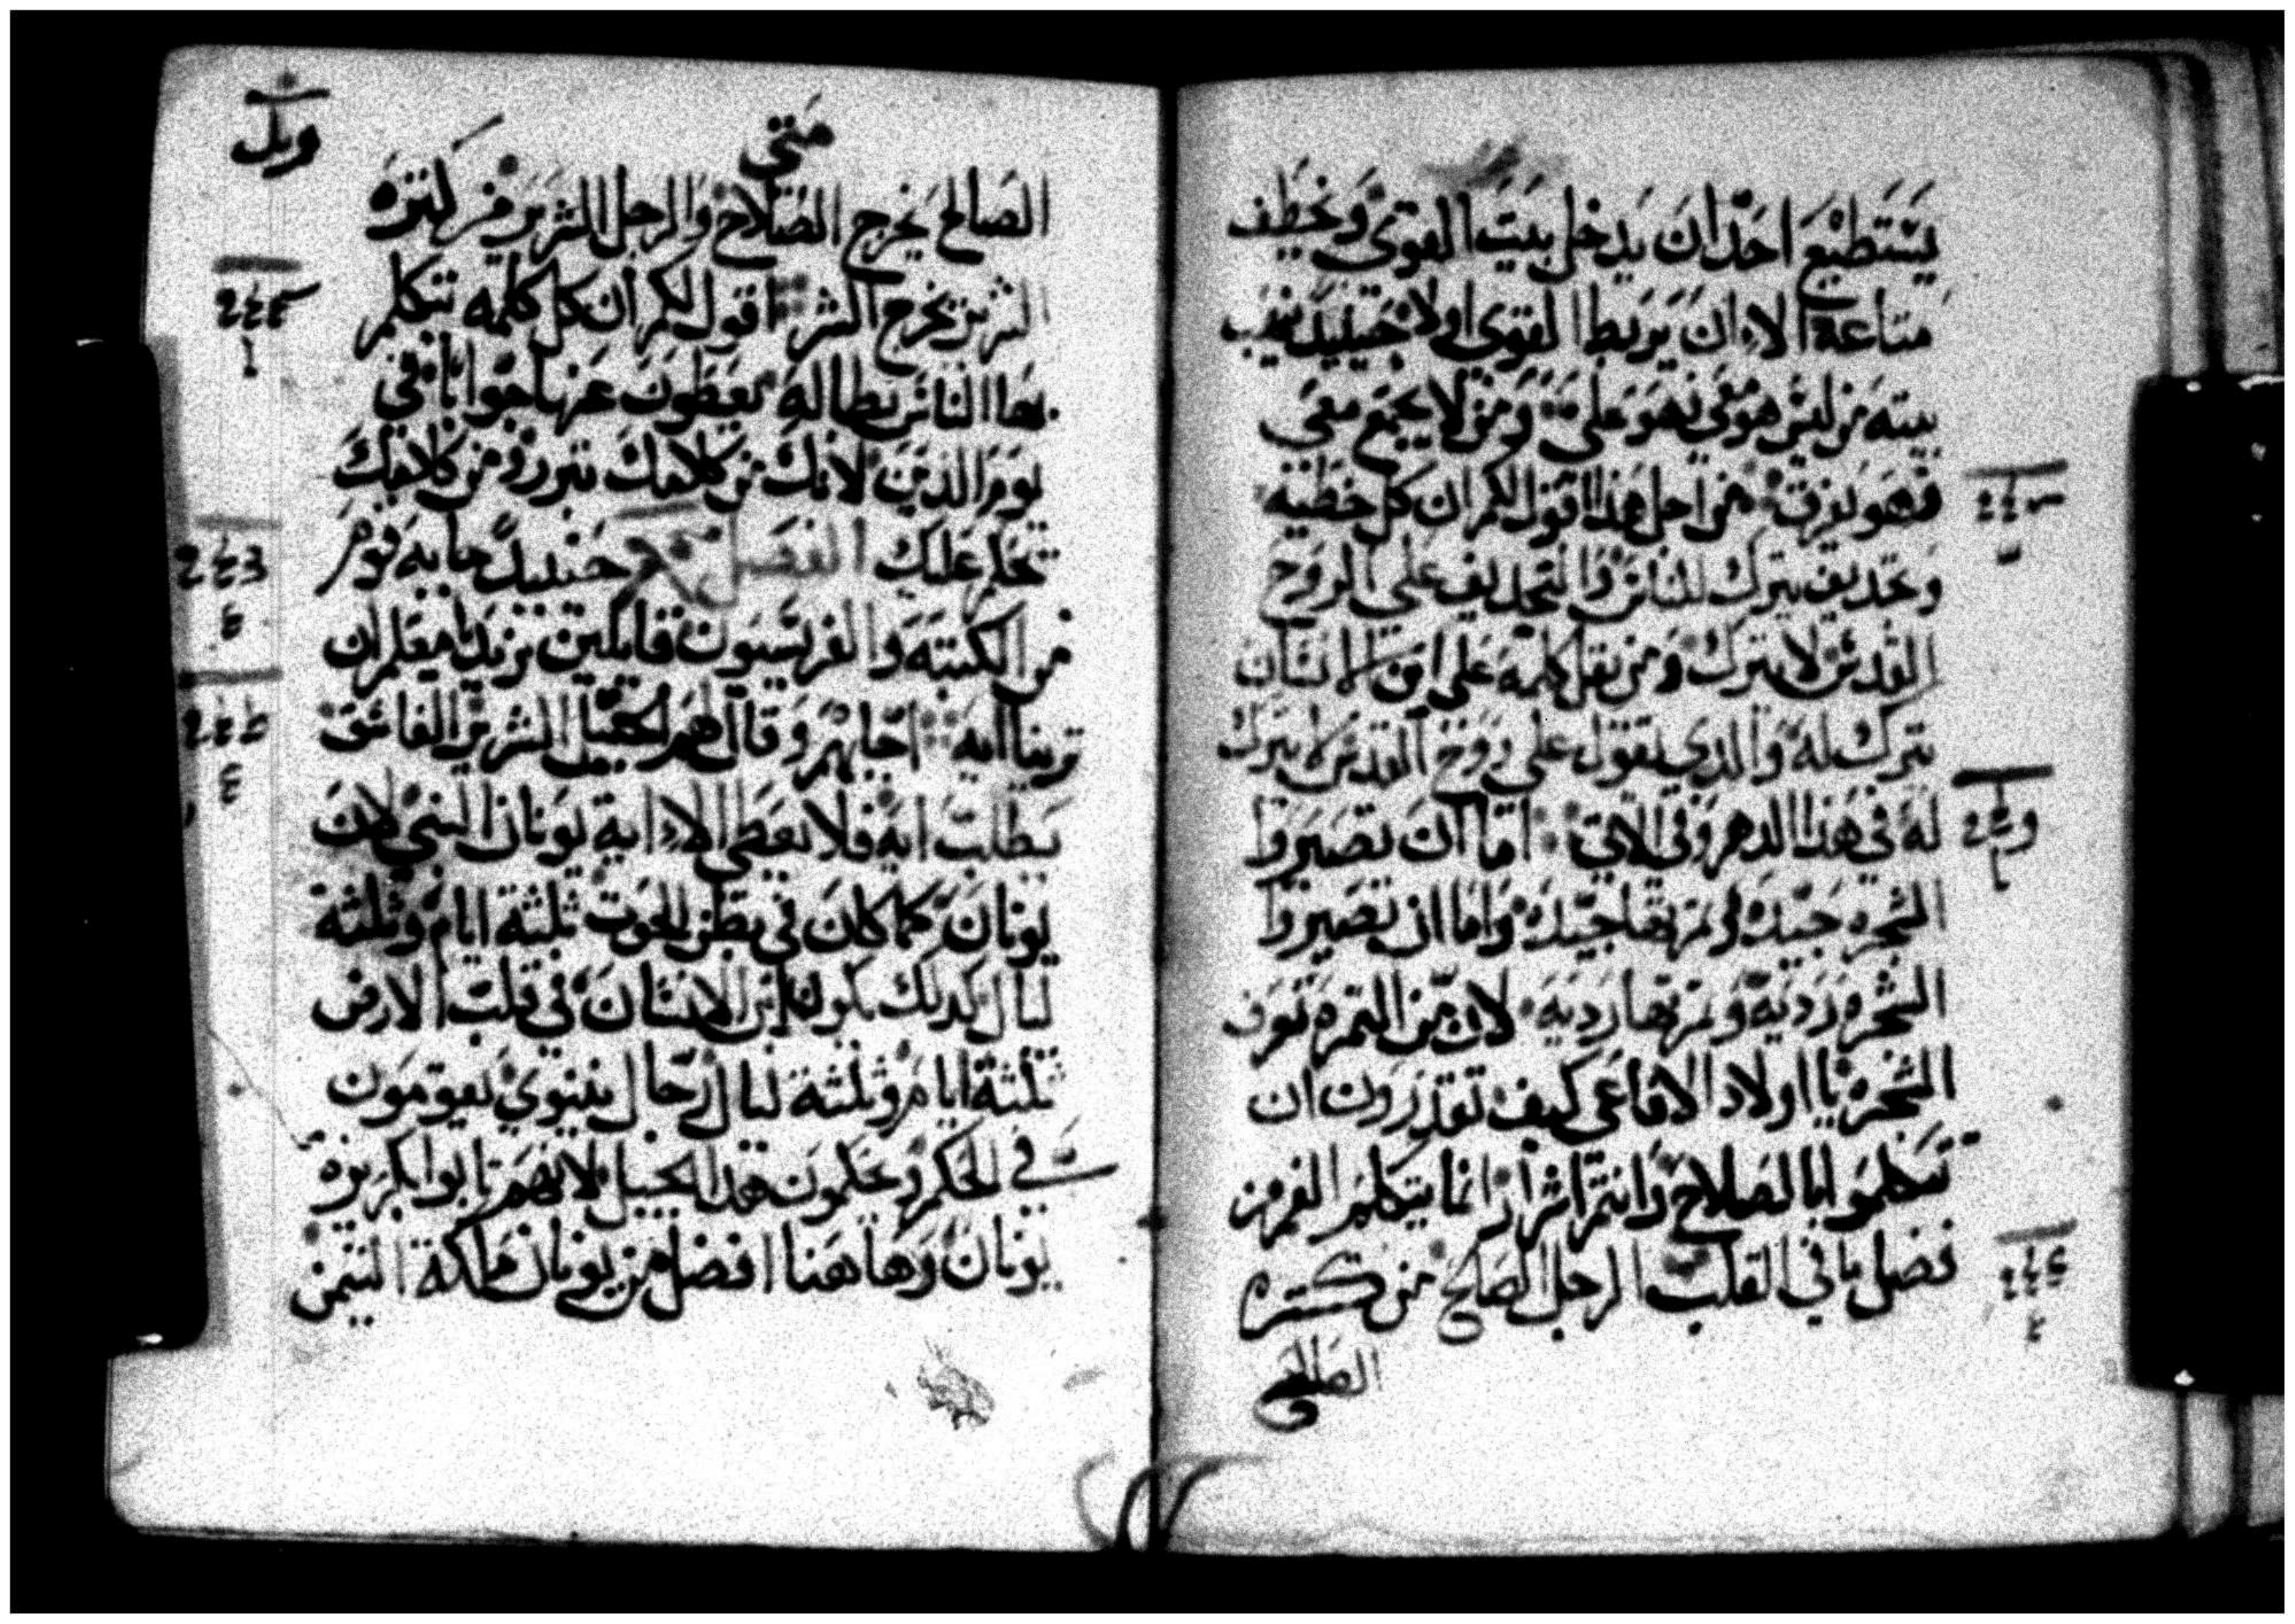 يستطيع احد ان يدخل بيت القوي ويخطف
متاعه الا ان يربط القوي اولا حينيد ينهب
بيته من ليس هو معي فهو علي ومن لا يجمع معي
فهو يفرق من اجل هذا اقول لكم ان كل خطيه
وتجديف يترك للناس والتجديف على الروح
القدس لا يترك ومن يقل كلمه على ابن الانسان
يترك له والدي يقول على روح القدس لا يترك
له في هذا الدهر وفي الاتي اما ان تصيروا
الشجره جيده وثمرتها جيده واما ان تصيروا
الشجره رديه وثمرتها رديه لان من الثمره تعرف
الشجره يا اولاد الافاعي كيف تقدرون ان
تتكلموا بالصلاح وانتم اشرار انما يتكلم الفم من
فضل ما في القلب الرجل الصالح من كنزه
الصالح
متى
الصالح يخرج الصلاح والرجل الشرير من كنزه
الشرير يخرج الشر اقول لكم ان كل كلمه تتكلم
بها الناس بطاله يعطون عنها جوابا في
يوم الدين لانك من كلامك تتبرر ومن كلامك
يحكم عليك الفصل حينيد جا به قوم
من الكتبه والفريسيون قايلين نريد يا معلم ان
ترينا ايه اجابهم وقال لهم الجيل الشرير الفاسق
يطلب ايه فلا يعطى الا اية يونان النبي لان
يونان كما كان في بطن الحوت ثلثة ايام وثلثة
ليال كدلك يكون ابن الانسان في قلب الارض
ثلثة ايام وثلثة ليال رجال نينوي يقومون
في الحكم ويحكمون هدا الجيل لانهم تابوا بكريزة
يونان وهاهنا افضل من يونان ملكة التيمن